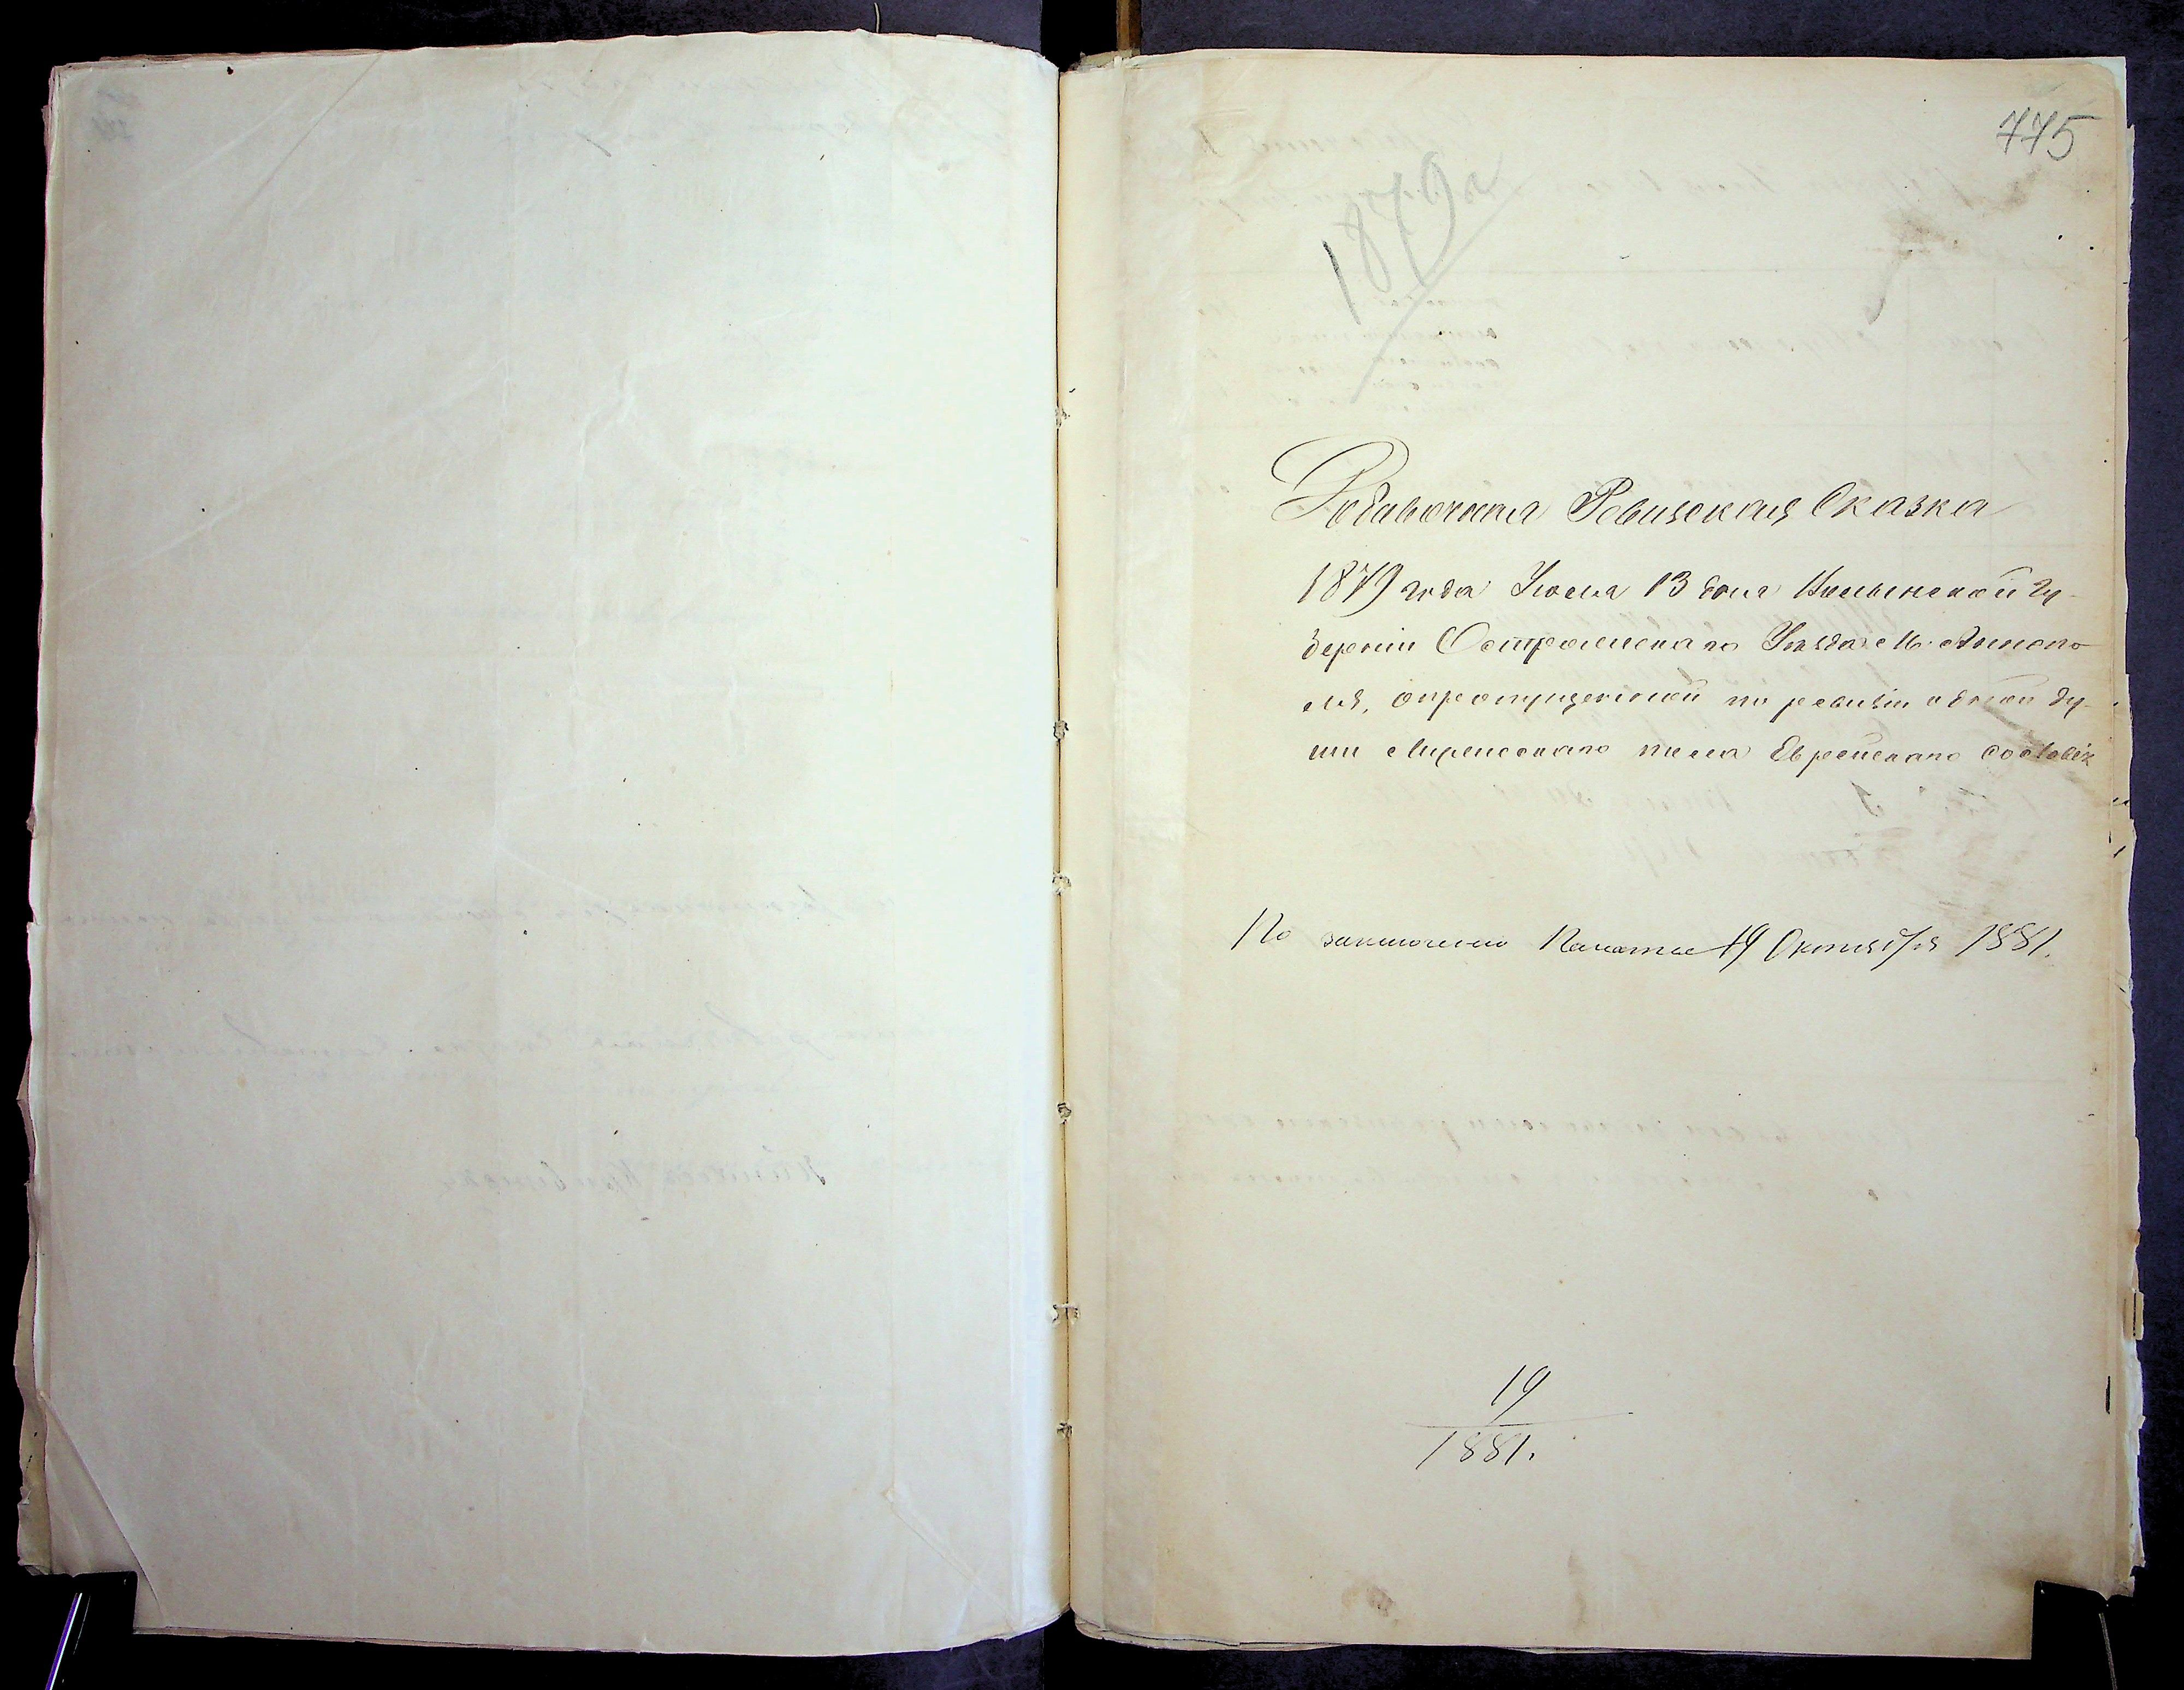 775
1879 г
Добавочная Ревизская Сказка
1879 года Іюля 13 дня Волынской Гу-
берніи Острожскаго Уѣзда М. Аннопо-
ля, о пропущенной по ревизіи одной ду-
ши мужескаго пола Еврейскаго
По заключенію Палаты 19 Октября 1881.
19
1881.